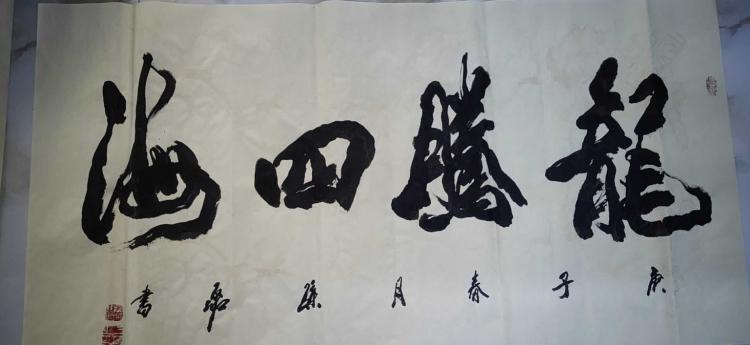 龍騰四海
庚子春月 書